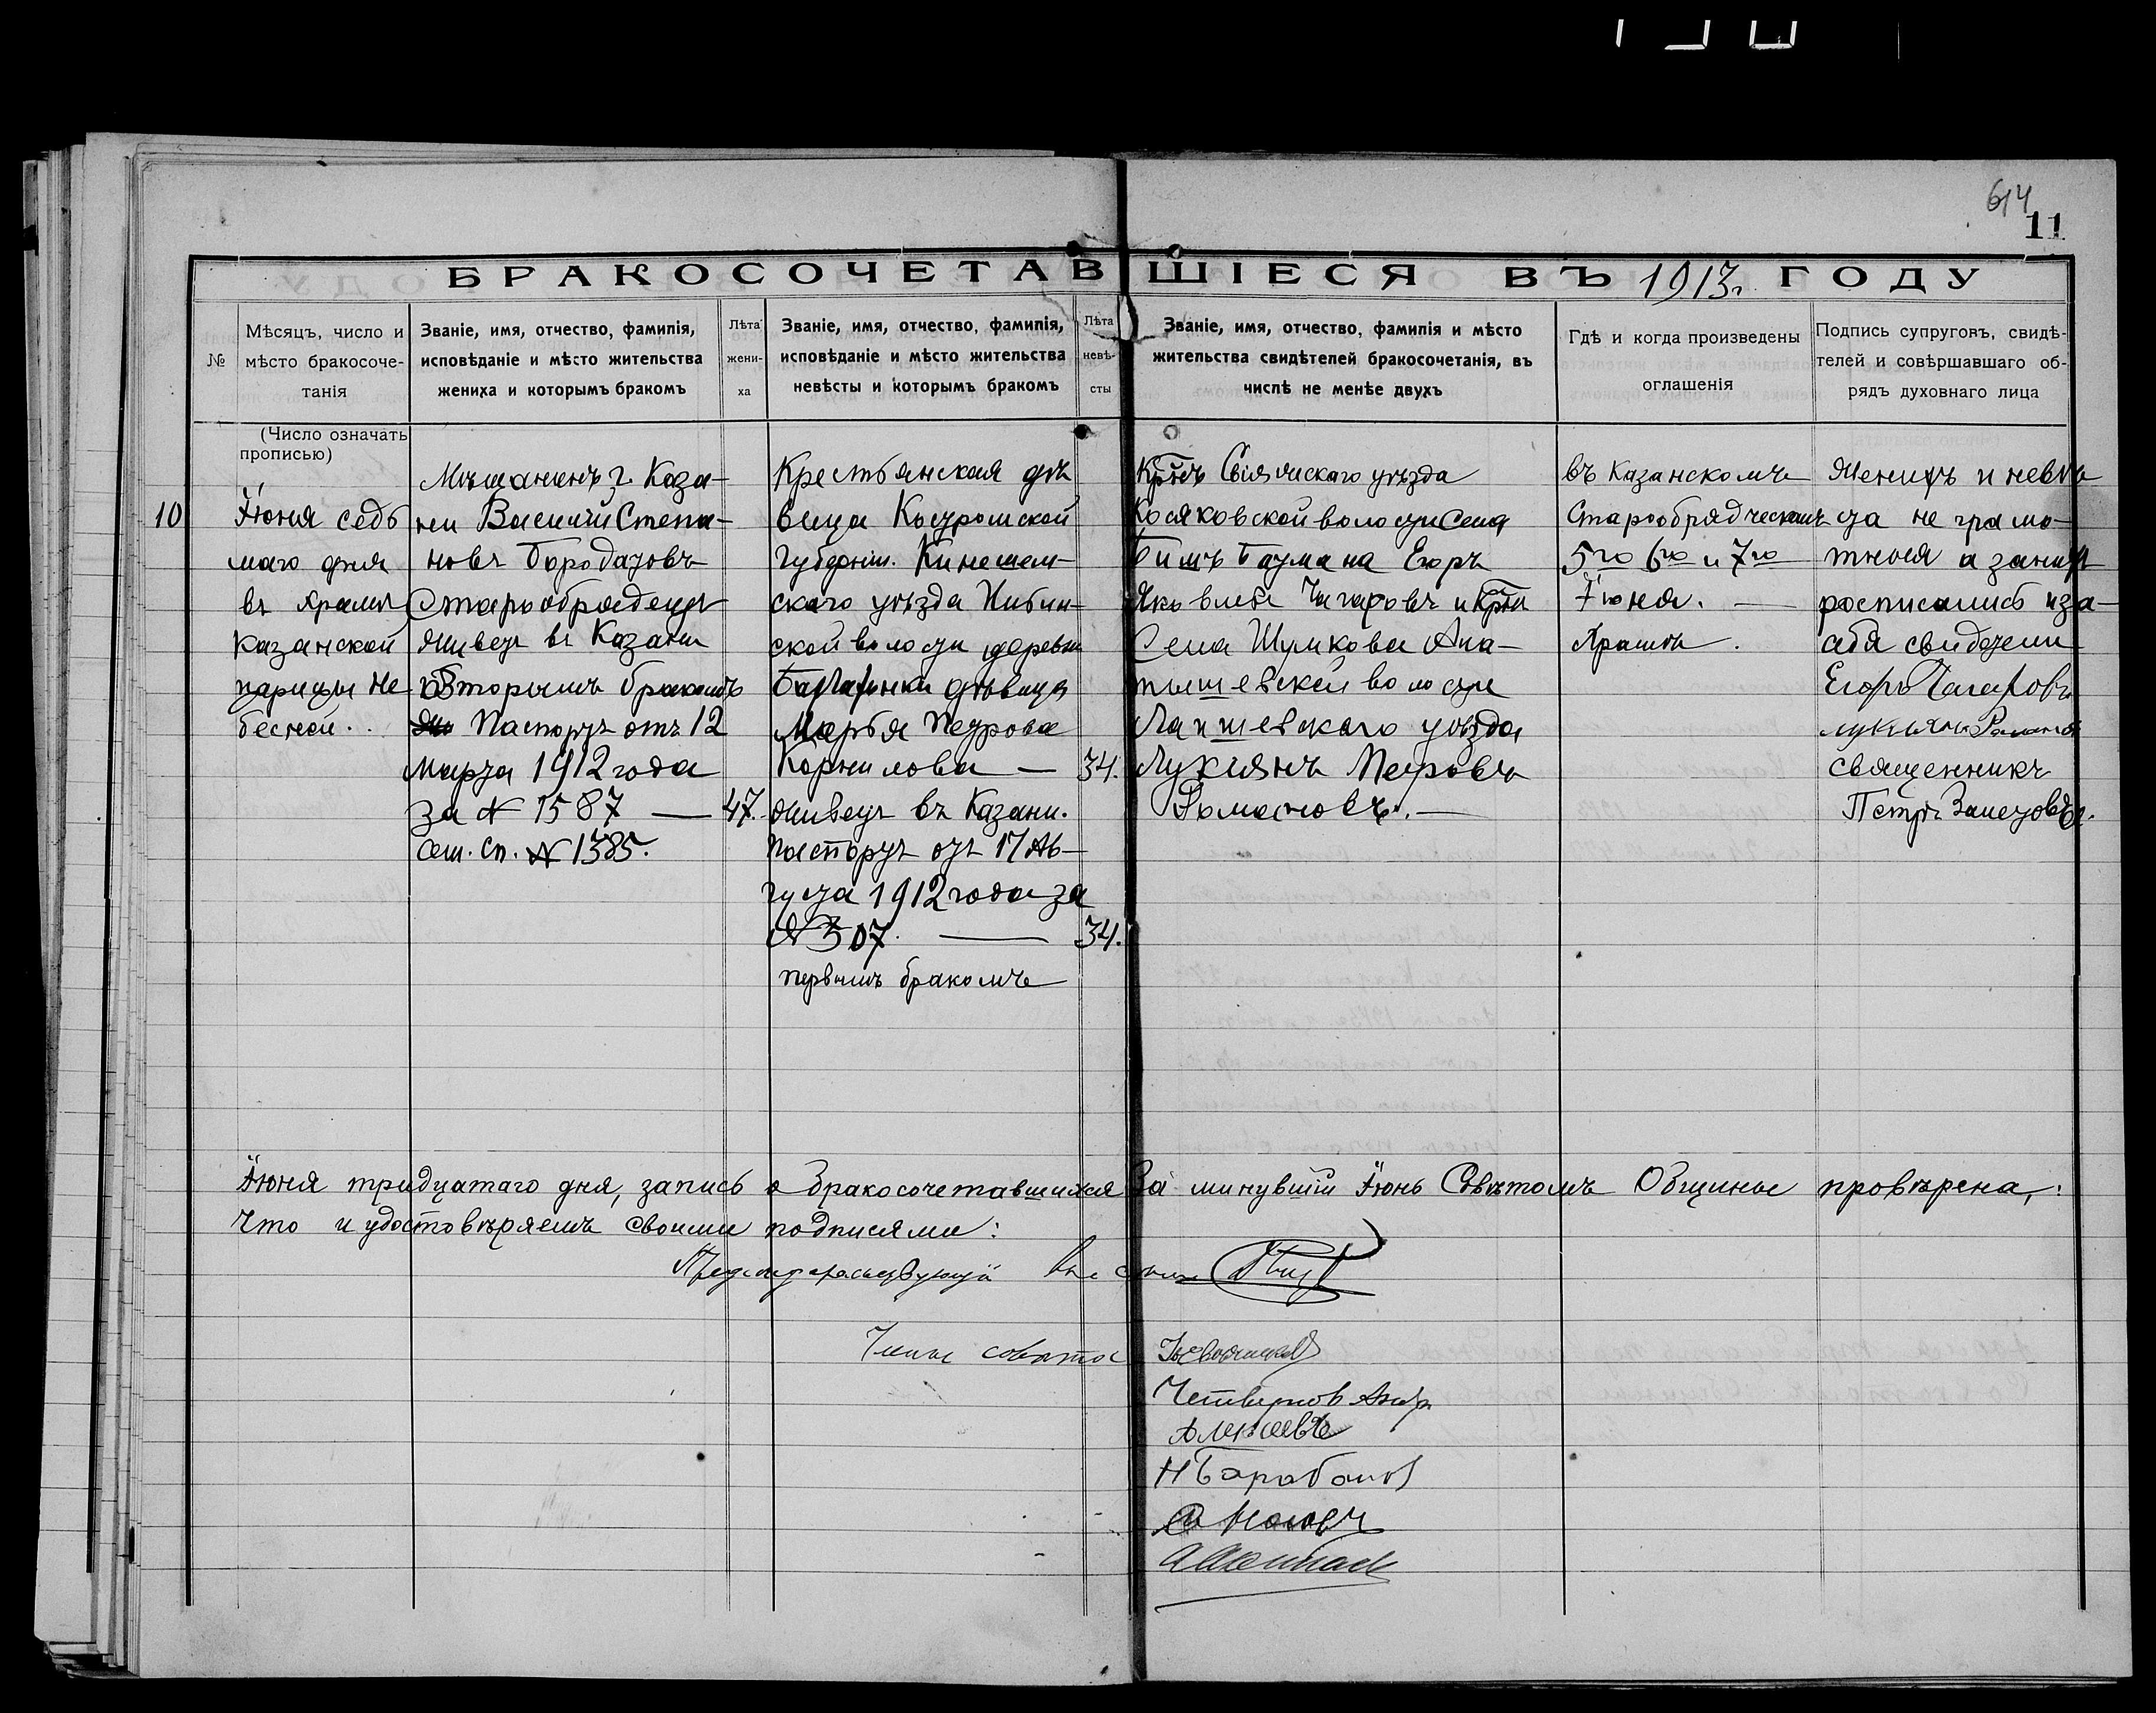 614
11
БРАКОСОЧЕТАВШІЕСЯ ВЪ 1913 г. ГОДУ
№
Мѣсяцъ, число и
мѣсто бракосоче-
танія
Званіе, имя, отчество, фамилія,
исповѣданіе и мѣсто жительства
жениха и которымъ бракомъ
Лѣта
жени-
ха
Званіе, имя, отчество, фамилія,
исповѣданіе и мѣсто жительства
невѣсты и которымъ бракомъ
Лѣта
невѣ-
сты
Званіе, имя, отчество, фамилія и мѣсто
жительства свидѣтелей бракосочетанія, въ
числѣ не менѣе двухъ
Гдѣ и когда произведены
оглашенія
Подпись супруговъ, свидѣ-
телей и совѣршавшаго об-
рядъ духовнаго лица
(Число означать
прописью)
10
Іюня седь
маго дня
въ храмѣ
Казанской
царицы Не-
бесной.
Мѣщанинъ г. Каза-
ни Василій Степа-
новъ Бородатовъ
Старообрядецъ
живетъ въ Казани
Вторымъ бракомъ
Паспортъ отъ 12
Марта 1912 года
за № 1587 — 47.
Сем. сп. № 1385.
Крестьянская дѣ
вица Костромской
Губерніи. Кинешем-
скаго уѣзда
ской волости деревни
дѣвица
Марья Петрова
Корнилова — 34.
живетъ въ Казани.
паспортъ отъ 17 Ав-
густа 1912 года за
№ 507. — 34.
первымъ бракомъ
Крнъ Свіяжскаго уѣзда
Косяковской волости села
Бишъ Баумана Егоръ
Яковлевъ Чагаровъ и Крнъ
Села Шумкова Ала-
тышевской волости
Лаишевскаго уѣзда
Лукіянъ Петровъ
Романовъ. —
въ Казанскомъ
Старообрядческомъ
5го 6го и 7го
Іюня. —
Храмѣ.
Женихъ и невѣ
ста не грамо-
тныя а занихъ
росписались иза-
себя свидетели
Егоръ Чагаровъ
Лукіянъ Романовъ
священникъ
Петръ Залетовъ.
Іюня тридцатаго дня, запись о бракосочетавшихся за минувшій Іюнь Совѣтомъ Общины провѣрена,
что и удостовѣряемъ своими подписями:
Председательствующій
Члены совѣта
Четвергов Андр
Алексеевъ
Н Барабанов